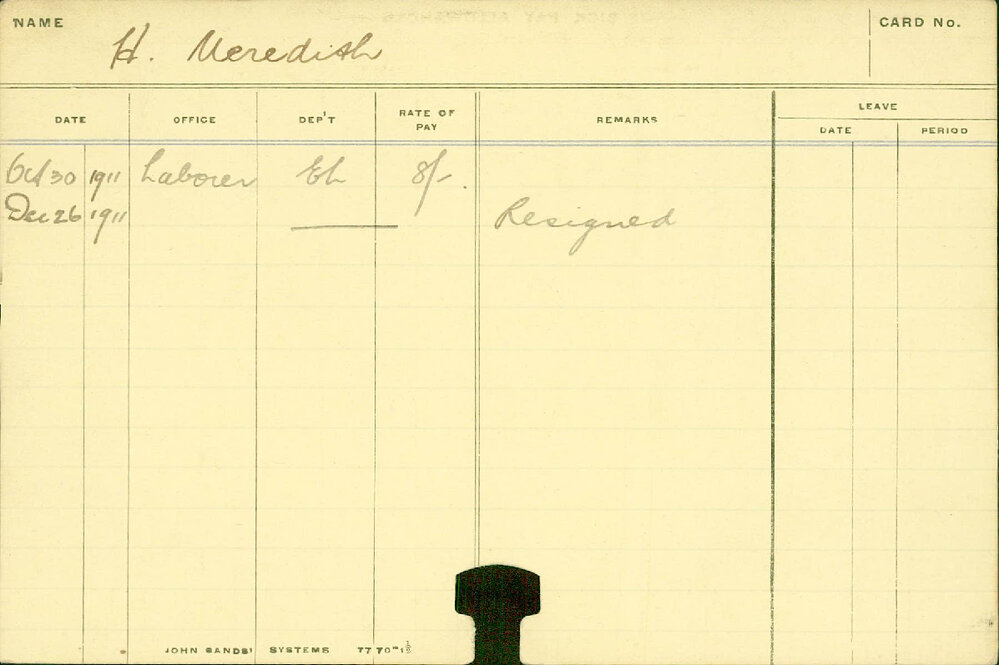 NAME H. Meredith CARD No.
DATE OFFICE DEP'T RATE OF PAY REMARKS LEAVE
DATE PERIOD
Oct 30 1911 Laborer Eh 8/-.
Dec 26 1911 Resigned
JOHN SANDS' SYSTEMS